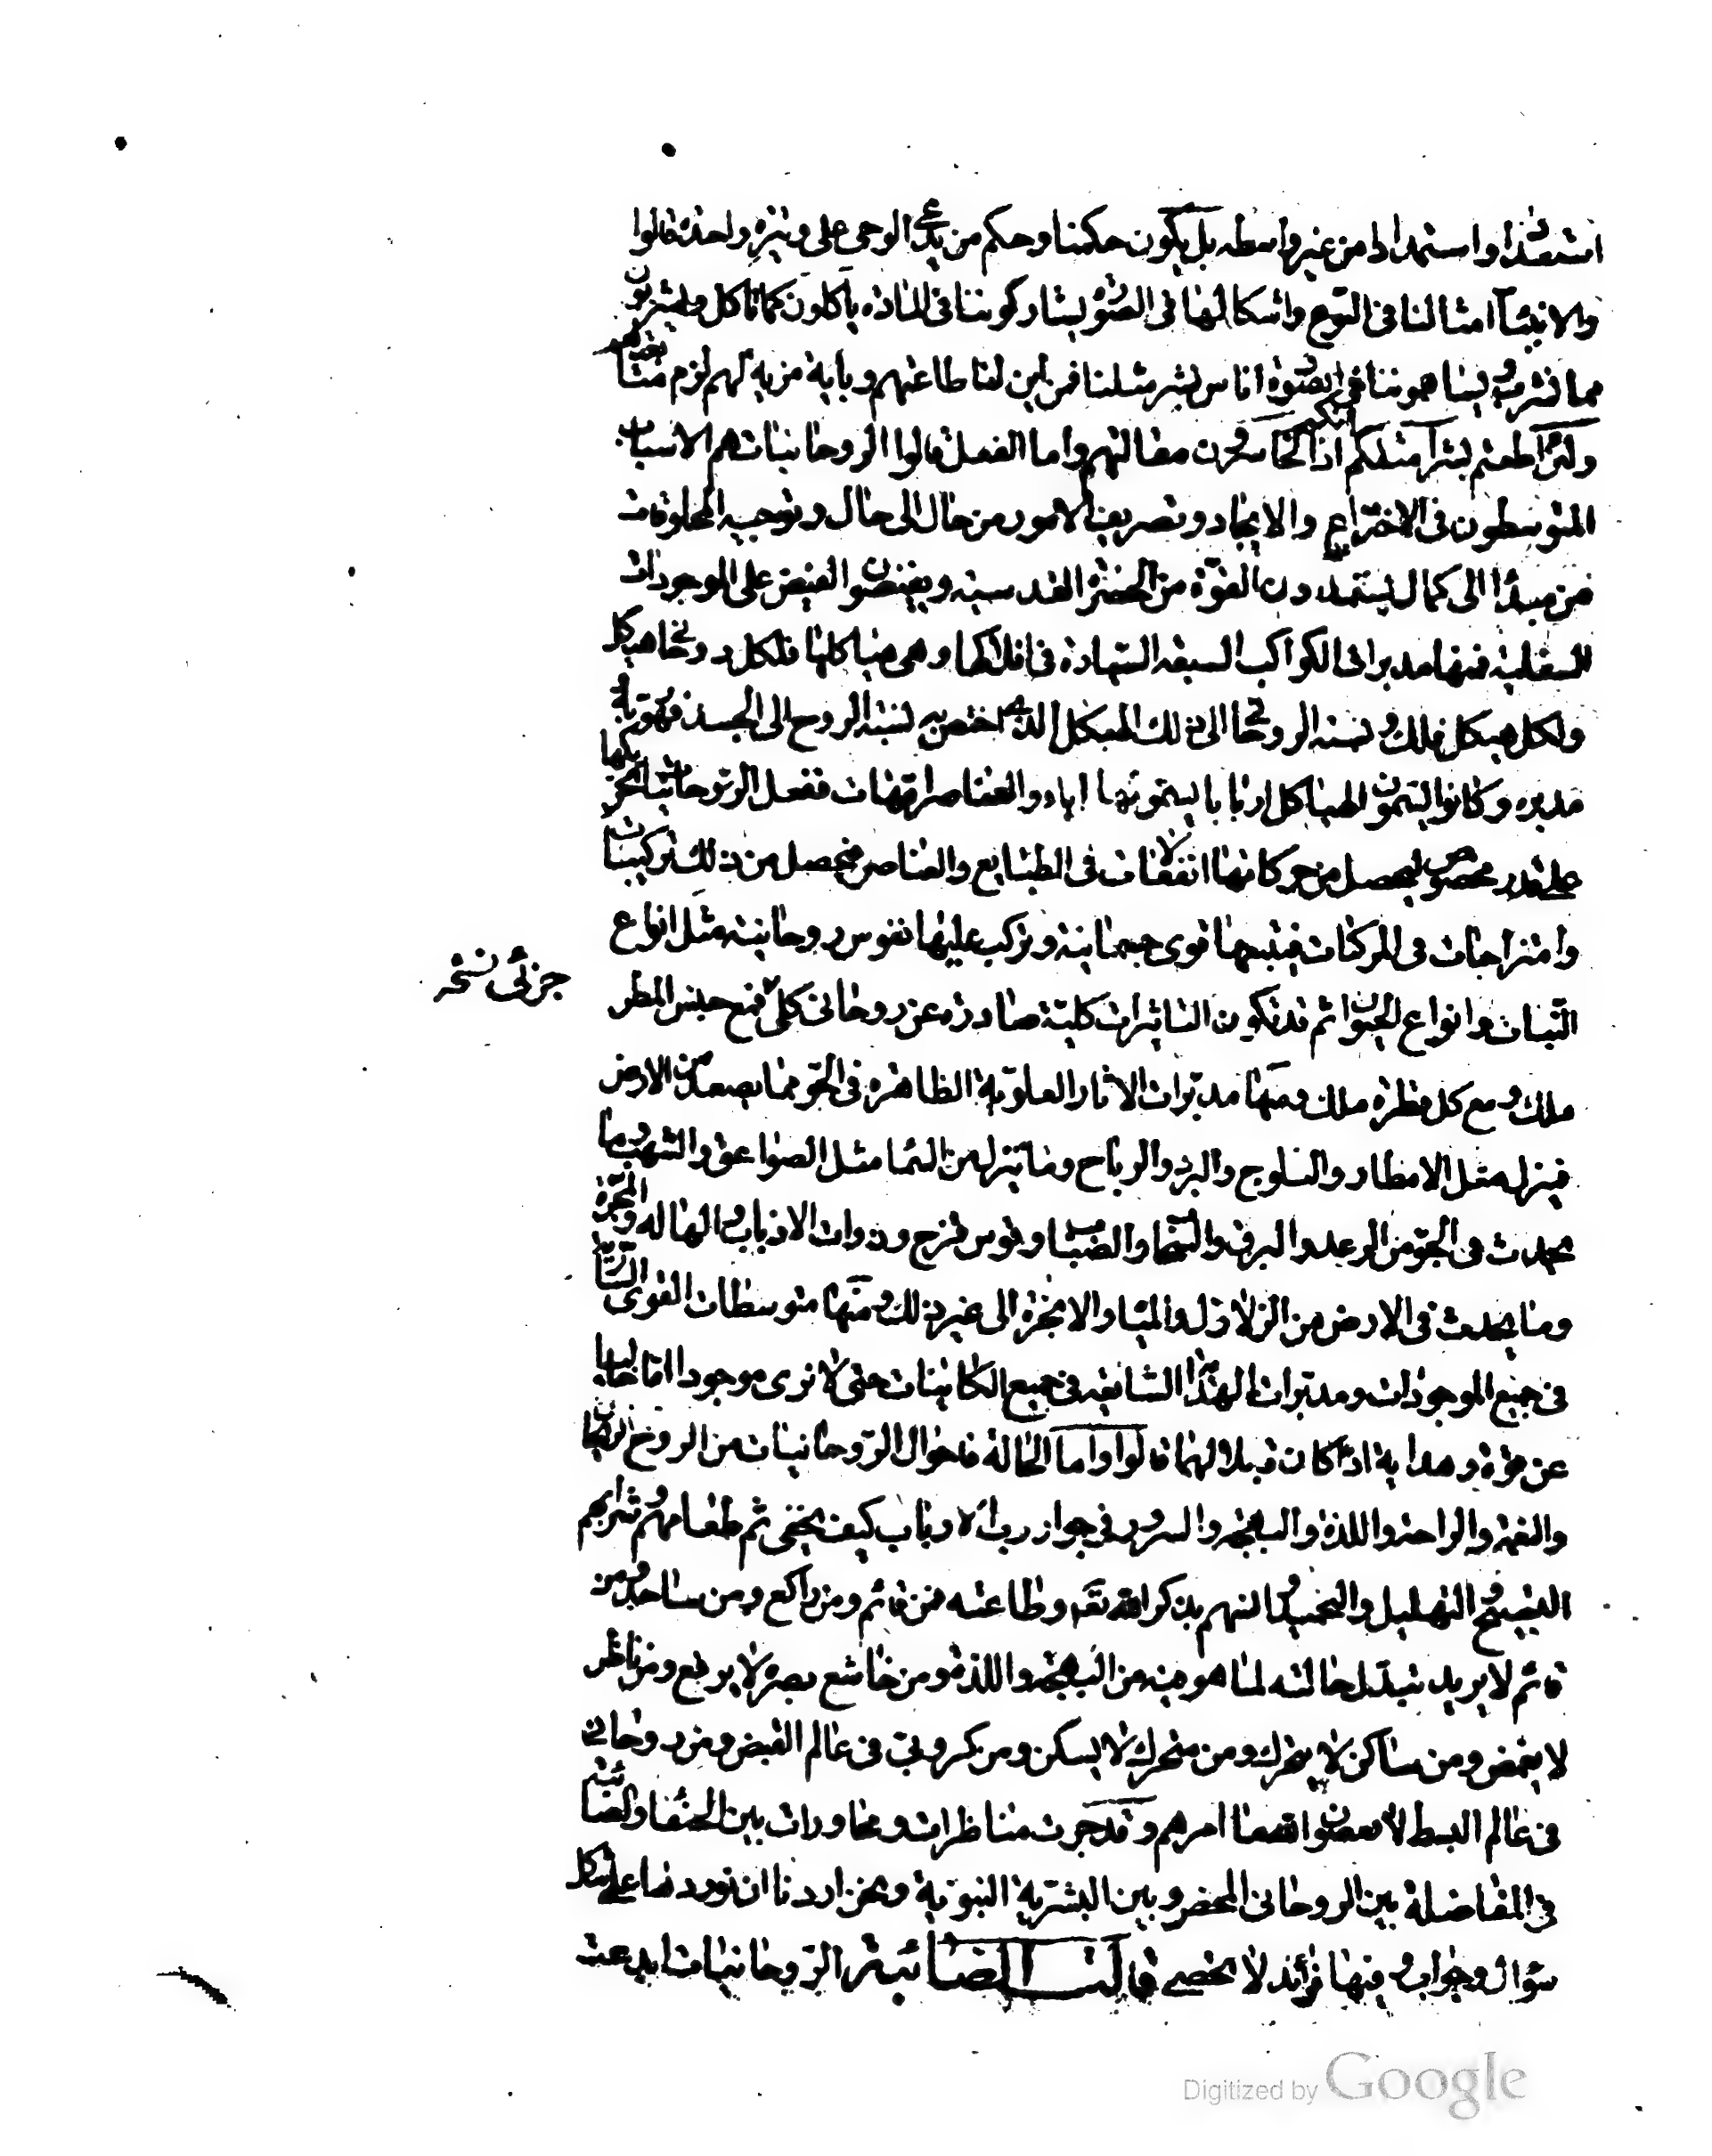 استعدادا واستمدادا من غير واسطه بل يكون حكمنا وحكم من يدعى الوحى على وتيرة واحدة قالوا
والانبياء امثالنا فى النوع واشكالنا فى الصورة يشاركوننا فى المادة ياكلون كما ناكل ويشربون
مما نشرب ويساهموننا فى الصورة اناس بشر مثلنا فمن اين لنا طاعتهم وباية مزية لهم لزم متابعتهم
ولئن اطعتم بشرا مثلكم انكم اذا لخاسرون مقالتهم واما الفعل قالوا الروحانيات هم الاسباب
المتوسطون فى الاختراع والايجاد وتصريف الامور من حال الى حال وتوجيه المخلوقات
من مبدأ الى كمال يستمدون القوة من الحضرة القدسية ويفيضون الفيض على الموجودات
السفلية فمنها مدبرات الكواكب السبعة السيارة فى افلاكها وهى هياكلها فلكل روحانى هيكل
ولكل هيكل فلك ونسبة الروحانى الى ذلك الهيكل الذى اختص به نسبة الروح الى الجسد فهو ربه
مدبره وكانوا يسمون الهياكل اربابا يسمونها اباء والعناصر امهات ففعل الروحانيات تحريكها
على قدر مخصوص ليحصل من حركاتها انفعالات فى الطبايع والعناصر فيحصل من ذلك تركيبات
وامتزاجات فى المركبات فيتبعها قوى جسمانية وتركب عليها نفوس روحانية مثل انواع
النبات وانواع الحيوان ثم قد تكون التاثيرات كلية صادرة عن روحانى كلى فمع جنس المطر
جزئى نسخه
ملك ومع كل قطرة ملك ومنها مدبرات الاثار العلوية الظاهرة فى الجو مما يصعد من الارض
فينزل مثل الامطار والثلوج والبرد والرياح وما ينزل من السما مثل الصواعق والشهب وما
يحدث فى الجو من الرعد والبرق والسحاب والضباب وقوس قزح وذوات الاذناب والهاله والمجرة
وما يحدث فى الارض من الزلازل والمياه والابخرة الى غير ذلك ومنها متوسطات القوى السارية
فى جميع الموجودات ومدبرات الهداية الشايعة فى جميع الكائنات حتى لا نرى موجودا ما خاليا
عن قوة وهداية اذا كان قابلا لهما قالوا واما الحالة فاحوال الروحانيات من الروح الريحان
والنعمة والراحة واللذة والبهجة والسرور فى جوار رب الارباب كيف يخفى ثم طعامهم وشرابهم
التسبيح والتهليل والتمجيد وانسهم بذكر الله تعه وطاعته فمن قائم ومن راكع ومن ساجد ومن
قائم لا يريد تبدل حالته لما هو فيه من البهجة واللذة ومن خاشع بصره لا يرفع ومن ناظر
لا يغمض ومن ساكن لا يتحرك ومن متحرك لا يسكن ومن كروبى فى عالم القبض ومن روحانى
فى عالم البسط لا يعصون الله ما امرهم وقد جرت مناظرات ومحاورات بين الحنفا والصابئة
فى المفاضلة بين الروحانى المحض وبين البشرية النبوية ونحن اردنا ان نوردها على شكل
سؤال وجواب وفيها فوائد لا تحصى قالت الصابئة الروحانيات ابدعت
Digitized by Google